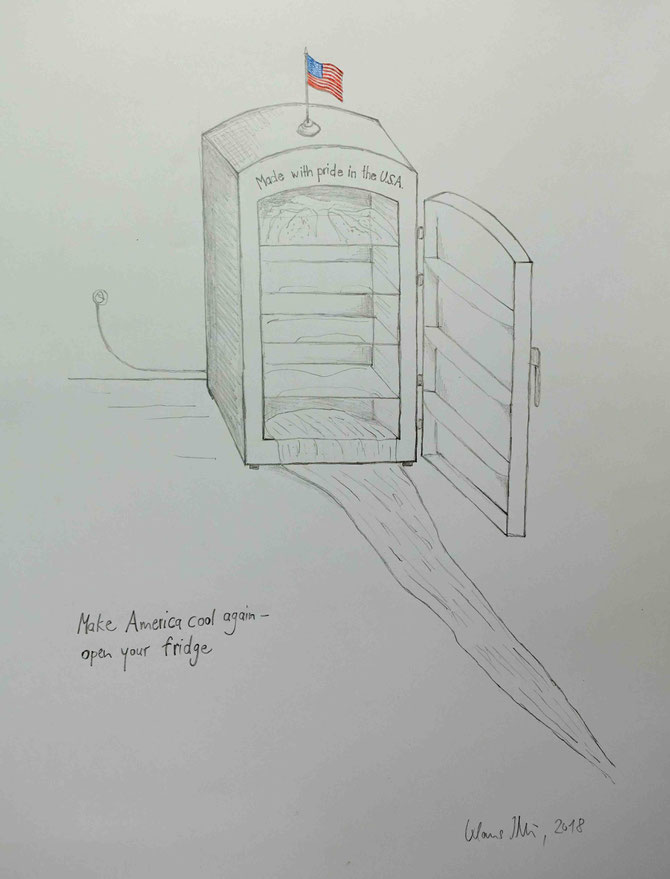 Made with pride in the U.S.A.
Make America cool again –
open your fridge
2018